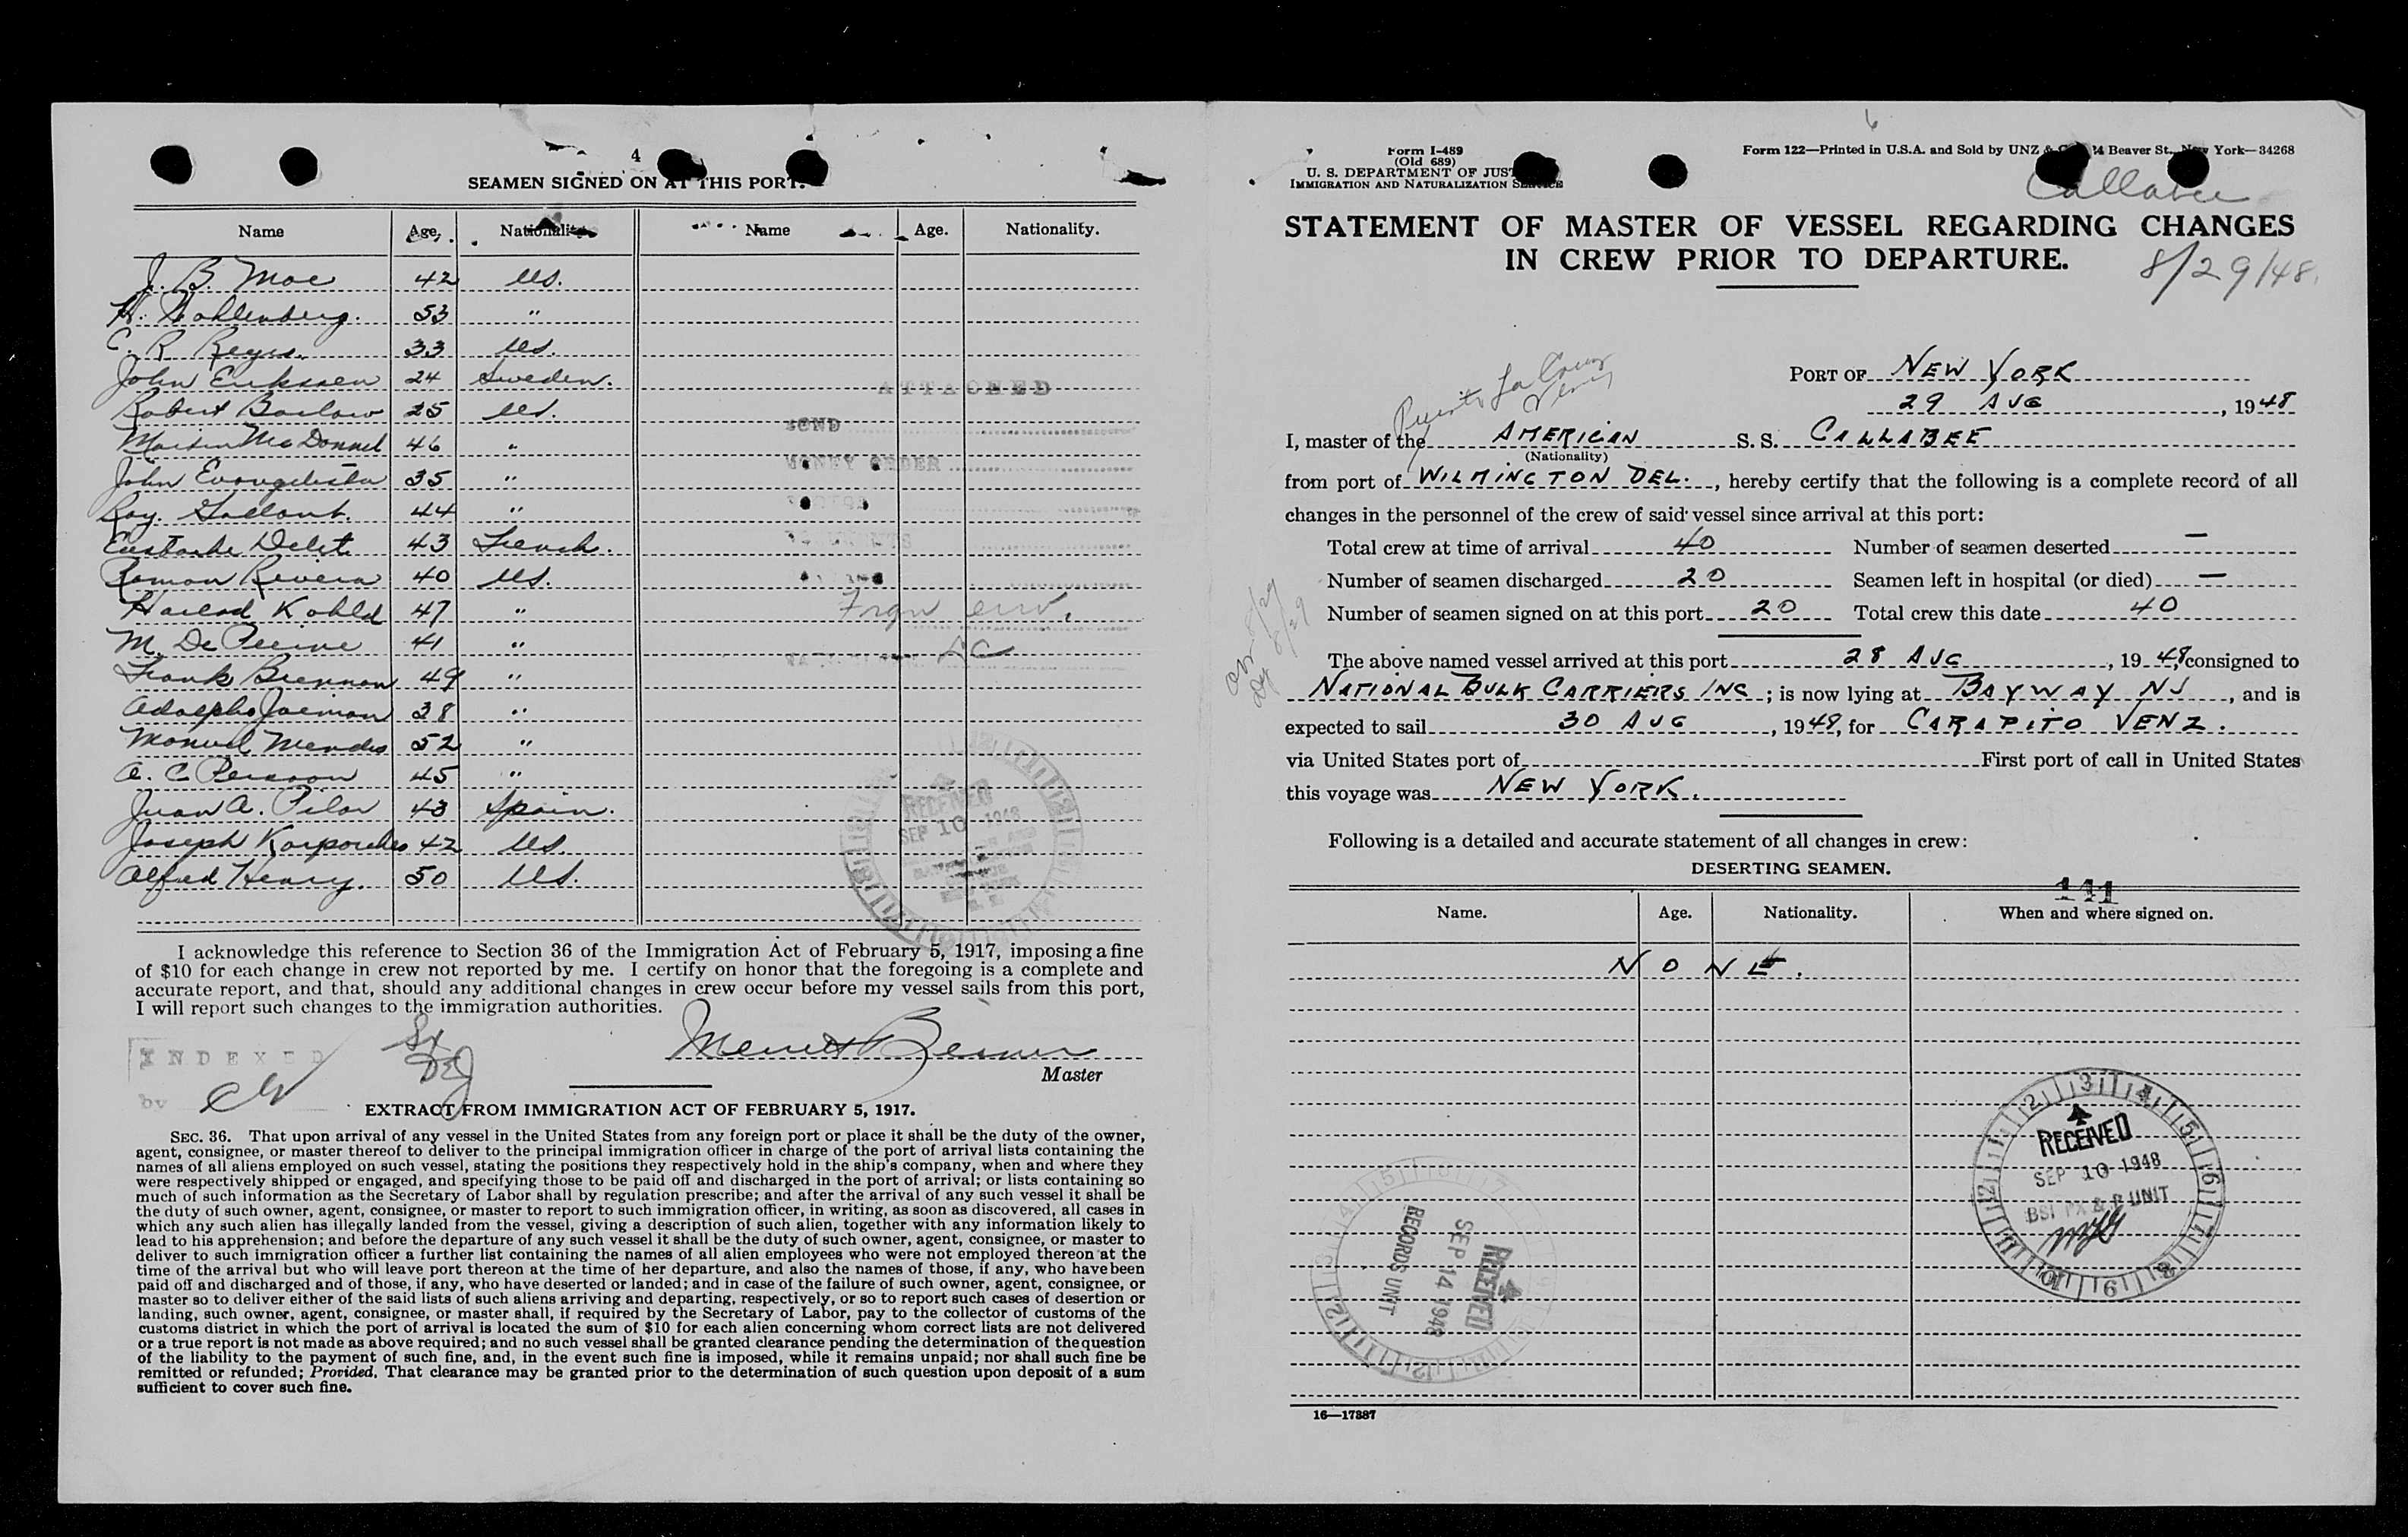 4
SEAMEN SIGNED ON AT THIS PORT.
Name Age. Nationality. Name Age. Nationality.
J. B. Moe 42 US.
H. Wohlenberg. 53 "
C. R. Reyes. 33 US.
John Erikssen 24 Sweden.
Robert Barlow 25 US.
Martin McDonnel 46 "
John Evangelista 35 "
Roy. Gallant. 44 "
Eustache Delet 43 French.
Ramon Rivera 40 US.
Harlod Kohld 47 "
M. De Peine 41 "
Frank Brennan 49 "
Adolpho Joemon 38 "
Manuel Mendes 52 "
A. C. Persson 45 "
Juan A. Pilar 43 Spain.
Joseph Karpowches 42 US.
Alfred Henry. 50 US.
ATTACHED
BOND
MONEY ORDER
RECEIVED
SEP 10 1948
I acknowledge this reference to Section 36 of the Immigration Act of February 5, 1917, imposing a fine
of $10 for each change in crew not reported by me. I certify on honor that the foregoing is a complete and
accurate report, and that, should any additional changes in crew occur before my vessel sails from this port,
I will report such changes to the immigration authorities.
INDEXED
by
Master
EXTRACT FROM IMMIGRATION ACT OF FEBRUARY 5, 1917.
SEC. 36. That upon arrival of any vessel in the United States from any foreign port or place it shall be the duty of the owner,
agent, consignee, or master thereof to deliver to the principal immigration officer in charge of the port of arrival lists containing the
names of all aliens employed on such vessel, stating the positions they respectively hold in the ship's company, when and where they
were respectively shipped or engaged, and specifying those to be paid off and discharged in the port of arrival; or lists containing so
much of such information as the Secretary of Labor shall by regulation prescribe; and after the arrival of any such vessel it shall be
the duty of such owner, agent, consignee, or master to report to such immigration officer, in writing, as soon as discovered, all cases in
which any such alien has illegally landed from the vessel, giving a description of such alien, together with any information likely to
lead to his apprehension; and before the departure of any such vessel it shall be the duty of such owner, agent, consignee, or master to
deliver to such immigration officer a further list containing the names of all alien employees who were not employed thereon at the
time of the arrival but who will leave port thereon at the time of her departure, and also the names of those, if any, who have been
paid off and discharged and of those, if any, who have deserted or landed; and in case of the failure of such owner, agent, consignee, or
master so to deliver either of the said lists of such aliens arriving and departing, respectively, or so to report such cases of desertion or
landing, such owner, agent, consignee, or master shall, if required by the Secretary of Labor, pay to the collector of customs of the
customs district in which the port of arrival is located the sum of $10 for each alien concerning whom correct lists are not delivered
or a true report is not made as above required; and no such vessel shall be granted clearance pending the determination of the question
of the liability to the payment of such fine, and, in the event such fine is imposed, while it remains unpaid; nor shall such fine be
remitted or refunded; Provided, That clearance may be granted prior to the determination of such question upon deposit of a sum
sufficient to cover such fine.
6
Form I-489
(Old 689)
U. S. DEPARTMENT OF JUST
IMMIGRATION AND NATURALIZATION SERVICE
Form 122—Printed in U.S.A. and Sold by UNZ & C 14 Beaver St., New York—34268
Callabee
STATEMENT OF MASTER OF VESSEL REGARDING CHANGES
IN CREW PRIOR TO DEPARTURE.
8/29/48.
PORT OF NEW YORK
29 AUG, 1948
Puerto La Cruz
I, master of the AMERICAN S. S. CALLABEE
(Nationality)
from port of WILMINGTON DEL., hereby certify that the following is a complete record of all
changes in the personnel of the crew of said vessel since arrival at this port:
Total crew at time of arrival 40 Number of seamen deserted —
Number of seamen discharged 20 Seamen left in hospital (or died) —
Number of seamen signed on at this port 20 Total crew this date 40
The above named vessel arrived at this port 28 AUG, 1948, consigned to
NATIONAL BULK CARRIERS INC; is now lying at BAYWAY NJ, and is
expected to sail 30 AUG, 1948, for CARAPITO VENZ.
via United States port of First port of call in United States
this voyage was NEW YORK.
Following is a detailed and accurate statement of all changes in crew:
DESERTING SEAMEN.
141
Name. Age. Nationality. When and where signed on.
NONE.
RECEIVED
SEP 10 1948
BSI PX & B UNIT
RECEIVED
SEP 14 1948
RECORDS UNIT
16—17387